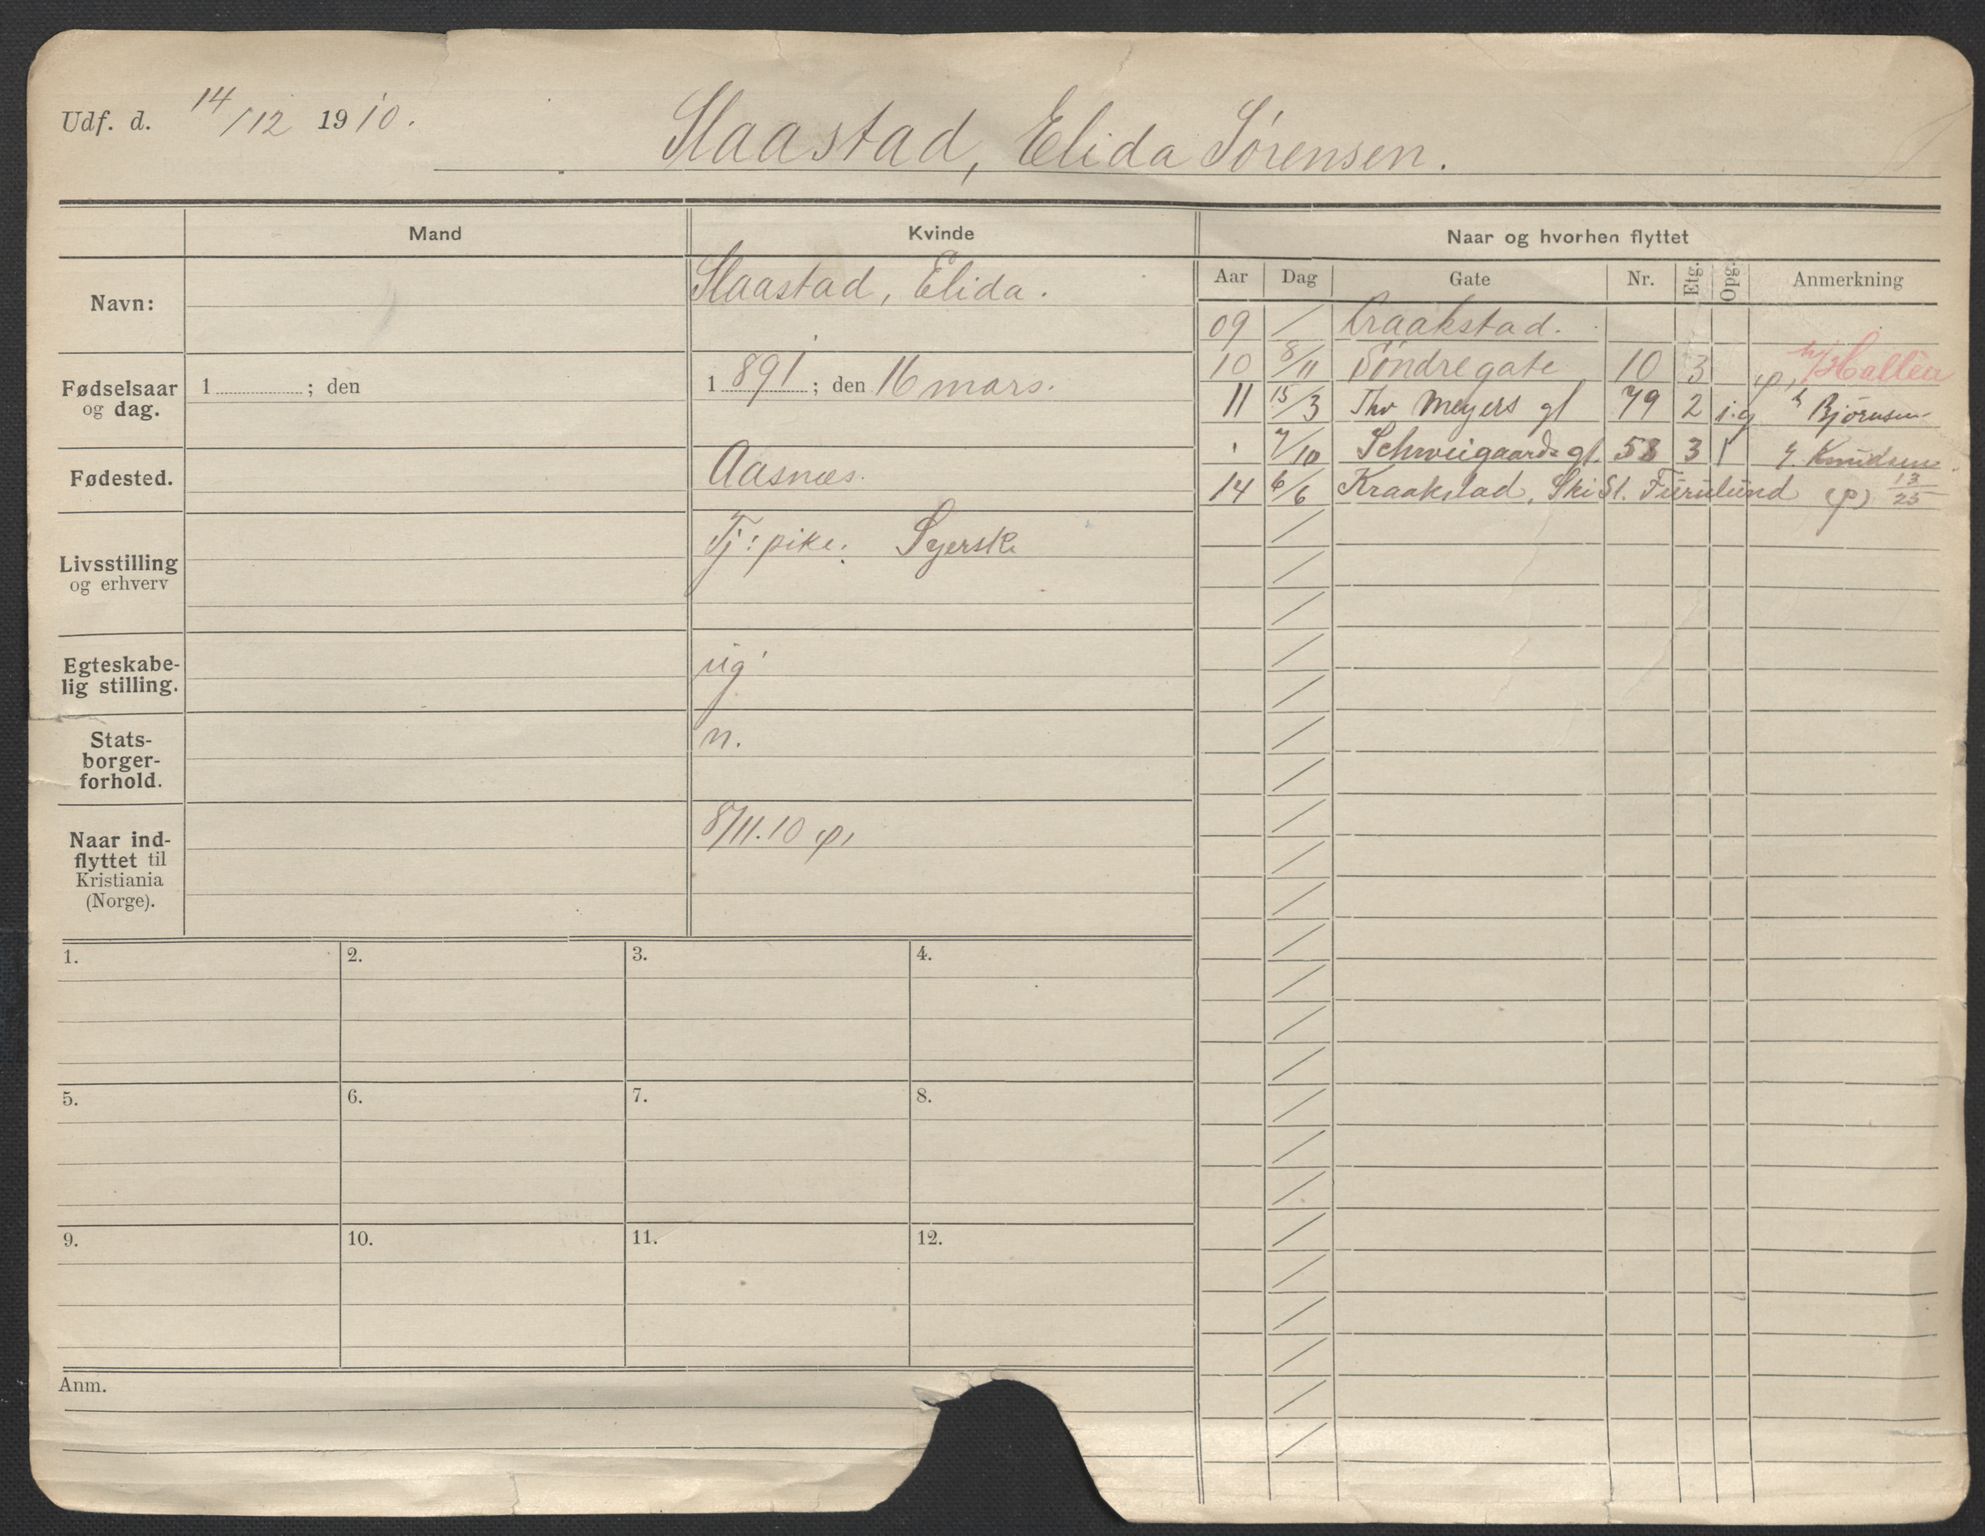 Udf. d. 14/12 1910.
Slaastad, Elida Sørensen.
Mand
Kvinde
Naar og hvorhen flyttet
Aar Dag Gate Nr. Etg. Opg. Anmerkning
Navn:
Slaastad, Elida.
Fødselsaar
og dag.
1 ; den
1 891 ; den 16 mars.
Fødested.
Aasnæs.
Livsstilling
og erhverv
Tj: pike. Syerske
Egteskabe-
lig stilling.
ug
Stats-
borger-
forhold.
n.
Naar ind-
flyttet til
Kristiania
(Norge).
8/11.10 φ,
09 / Kraakstad.
10 8/11 Søndregate 10 3 φ, h/ Hallén
11 15/3 Thv Meyers gt 79 2 i.g h Bjørnsen
" 7/10 Schweigaardsgt. 58 3 1 Knudsen
14 6/6 Kraakstad, Ski St. Furulund (φ) 13/25
1. 2. 3. 4.
5. 6. 7. 8.
9. 10. 11. 12.
Anm.